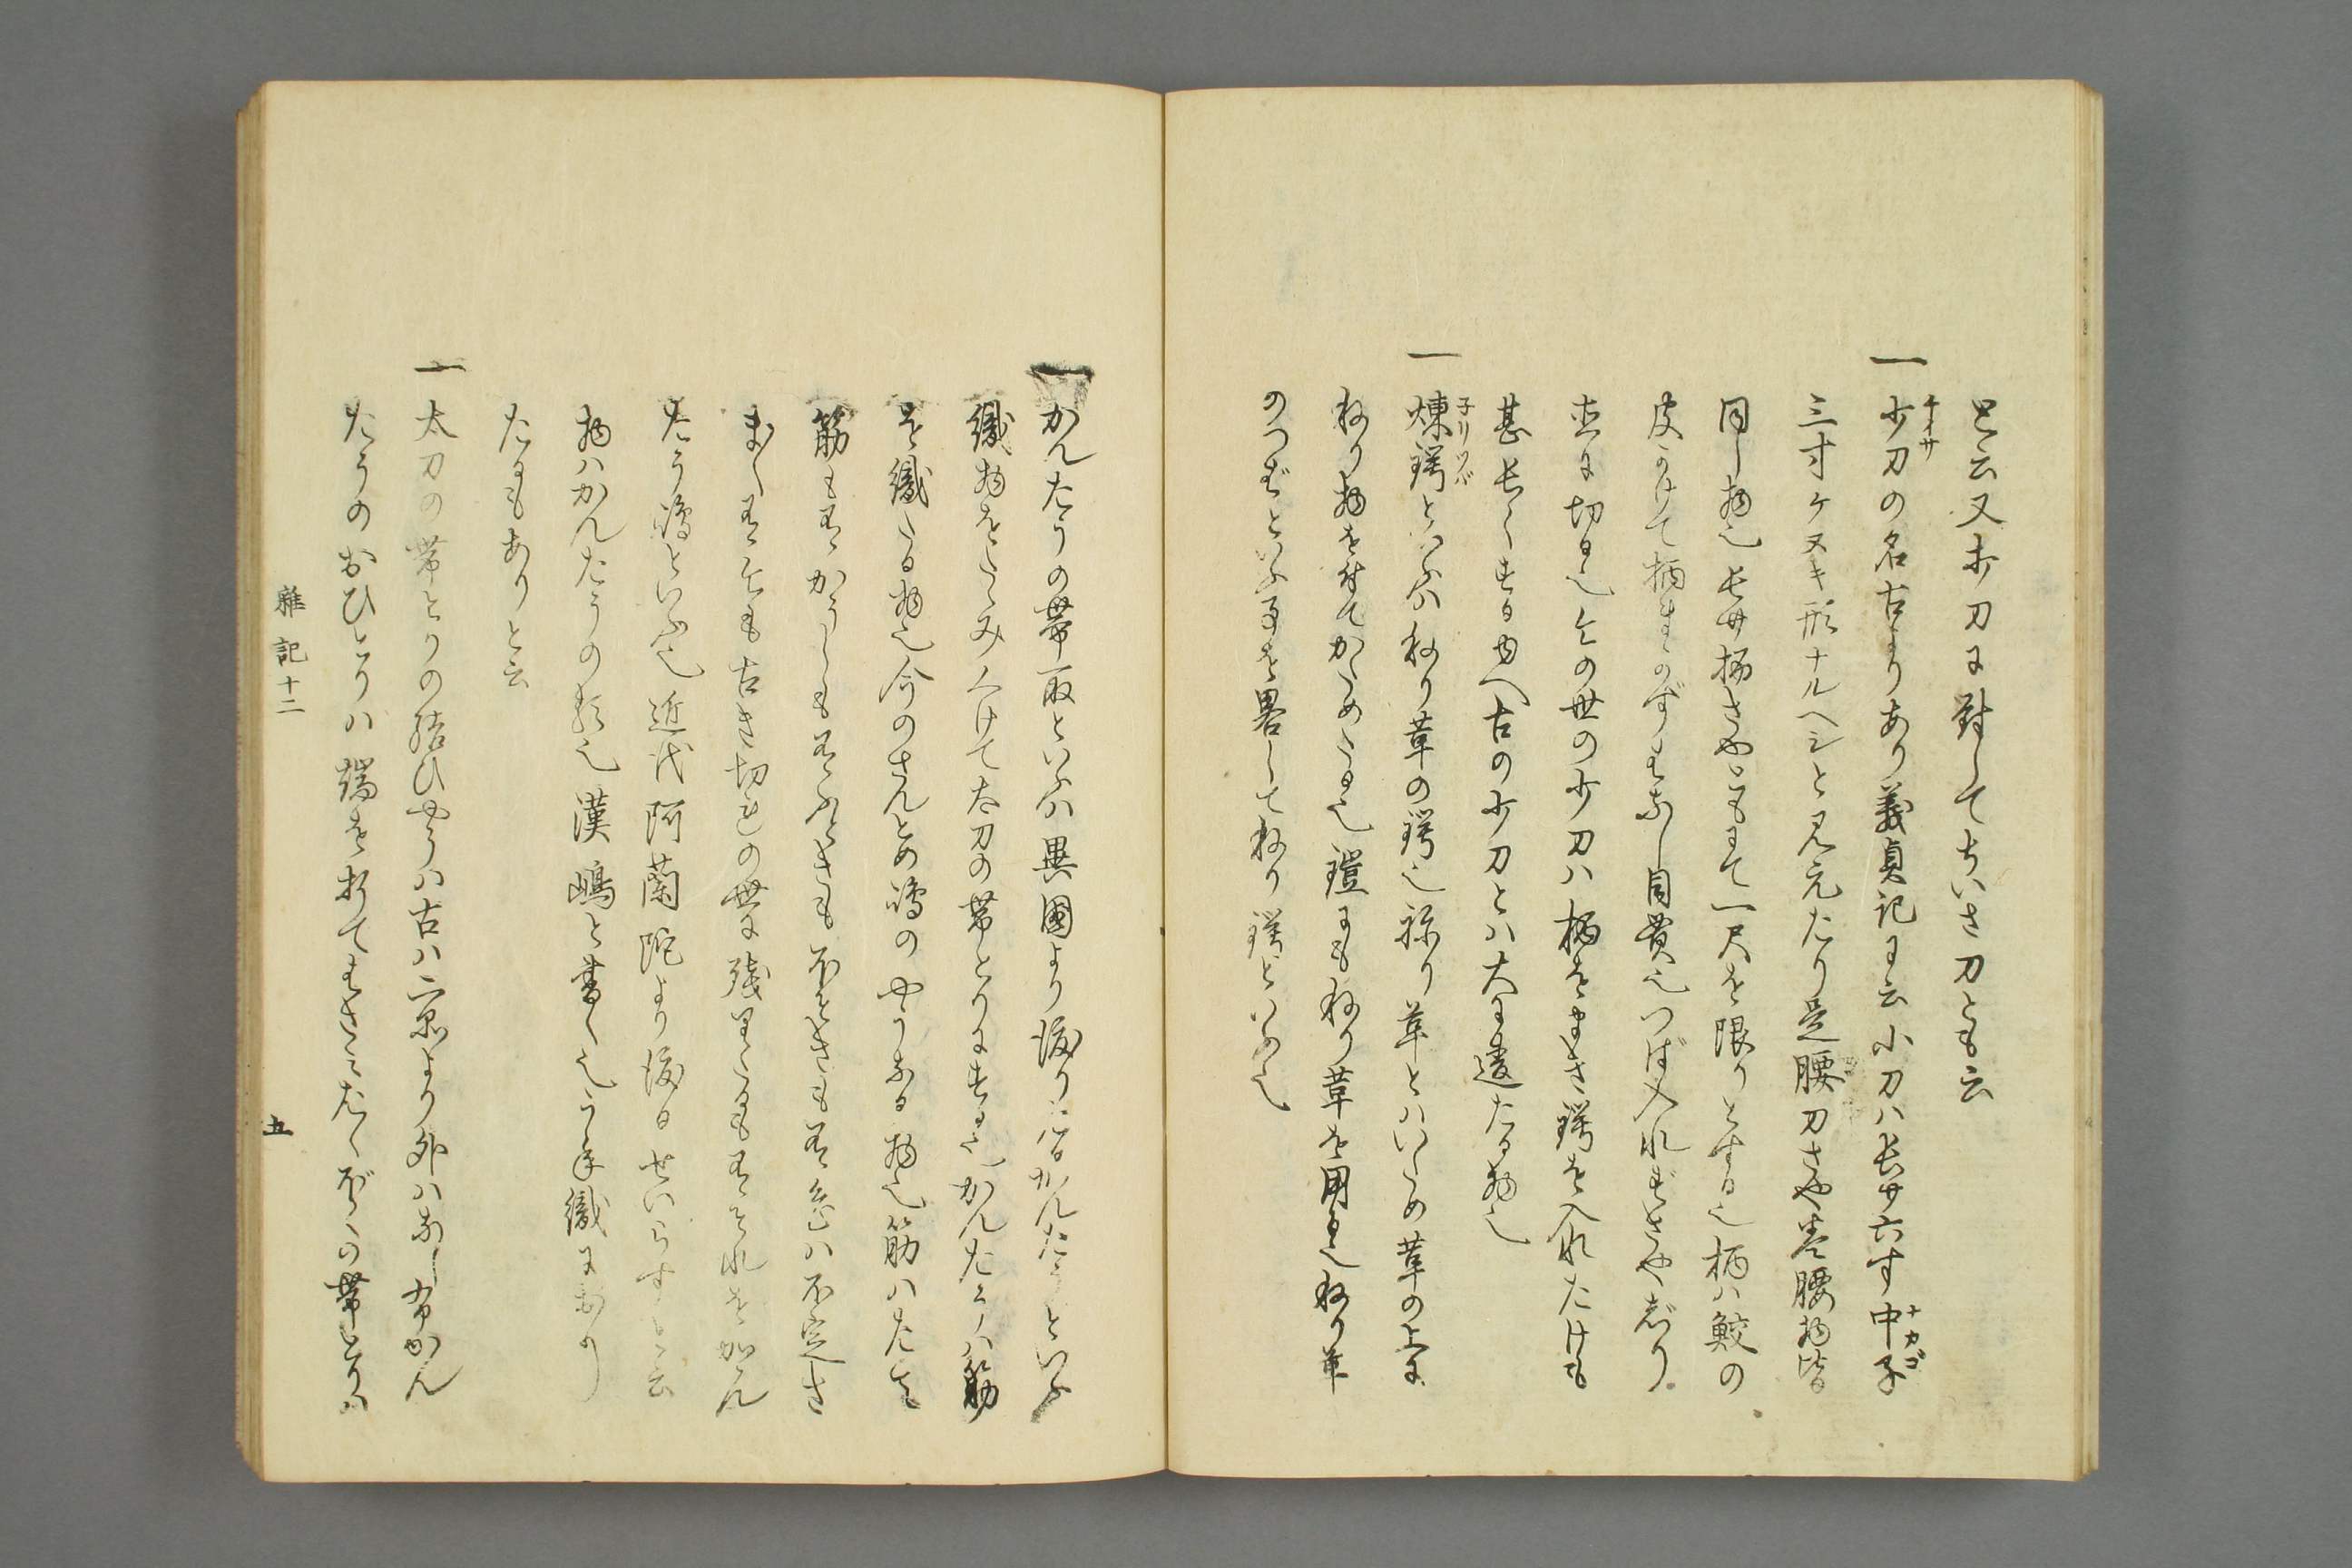 と云又打刀に対してちいさ刀とも云
一 少刀の名古よりあり義貞記に云小刀ハ長サ六寸中子
チイサ
ナカゴ
三寸ケヌキ形ナルヘシと見えたり是腰刀さや巻腰物皆
同し物也長サ柄さやともに て一尺を限りとする也柄ハ鮫の
皮かけて柄まかずもなし目貫也つば入れずさや
直に切る也今の世の少刀ハ柄をまき鍔を入れたけも
甚長くする由へ古の少刀とハ大に違たる物也
一 煉鍔といふハねり革の鍔也ねり革とハいため革の上に
子リツバ
ねり物を付てかためたる也鐙にもねり革を用る也ねり革
のつばといふ事を畧してねり鍔といふ也
一 かんたうの帯取といふハ異国より渡りたるかんたうといふ
織物をたゝみくけて太刀の帯とりにする也かんたうハ筋
を織たる物也今のさんとめ嶋のやうなる物也筋ハたて
筋も有かうしも有ふときも ほそきも有色ハ不定さ
ま〱有今も古き切れの世に残りたるも有それをかん
たう嶋といふ也近代阿蘭陀より渡るせいらすと云
物ハかんたうの類也漢嶋と書く也うね織にあり
たるもありと云
一 太刀の帯とりの結ひやうハ古ハ二品より外ハなし常かん
たうのおひとりハ端を折てはさみたく の帯とりハ
雑記十二
五